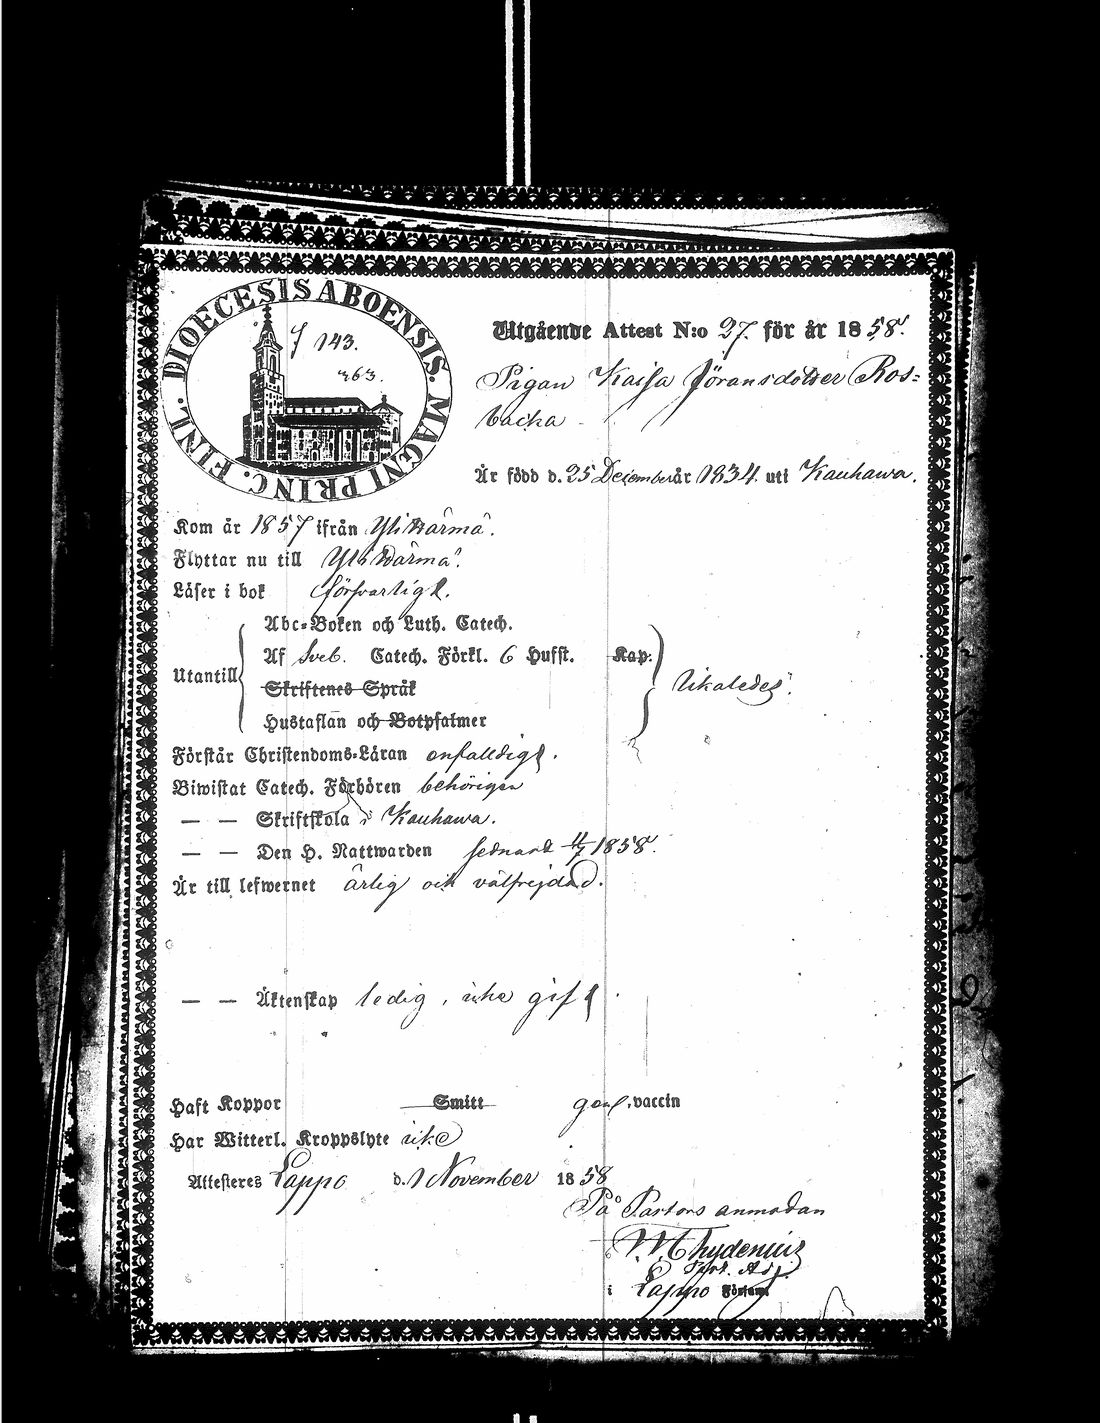 DIOECESIS ABOENSIS. MAGNI PRINC. FINL.
f 143.
363.
Utgående Attest N:o 27. för år 1858.
Pigan Kaisa Jöransdotter Ros=
backa
Är född d. 25 December år 1834. uti Kauhawa.
Kom år 1857 ifrån Ylikärmä.
Flyttar nu till Ylikärmä.
Läser i bok försvarligt.
Abc=Boken och Luth. Catech.
Utantill Af Sveb. Catech. Förkl. 6 Hufst. Kap. likaledes.
Skriftenes Språk
Hustaflan och Botpsalmer
Förstår Christendoms=Läran enfalldigt.
Biwistat Catech. Förhören behörigen
— — Skriftskola i Kauhawa.
— — Den H. Nattwarden sednast 11/7 1858.
Är till lefwernet ärlig och välfrejdad.
— — Äktenskap ledig, icke gift.
Haft Koppor Smitt gen. vaccin
Har Witterl. Kroppslyte icke
Attesteres Lappo d. 1 November 1858
På Pastors anmodan
Thydenius
Adj.
i Lappo Församl.